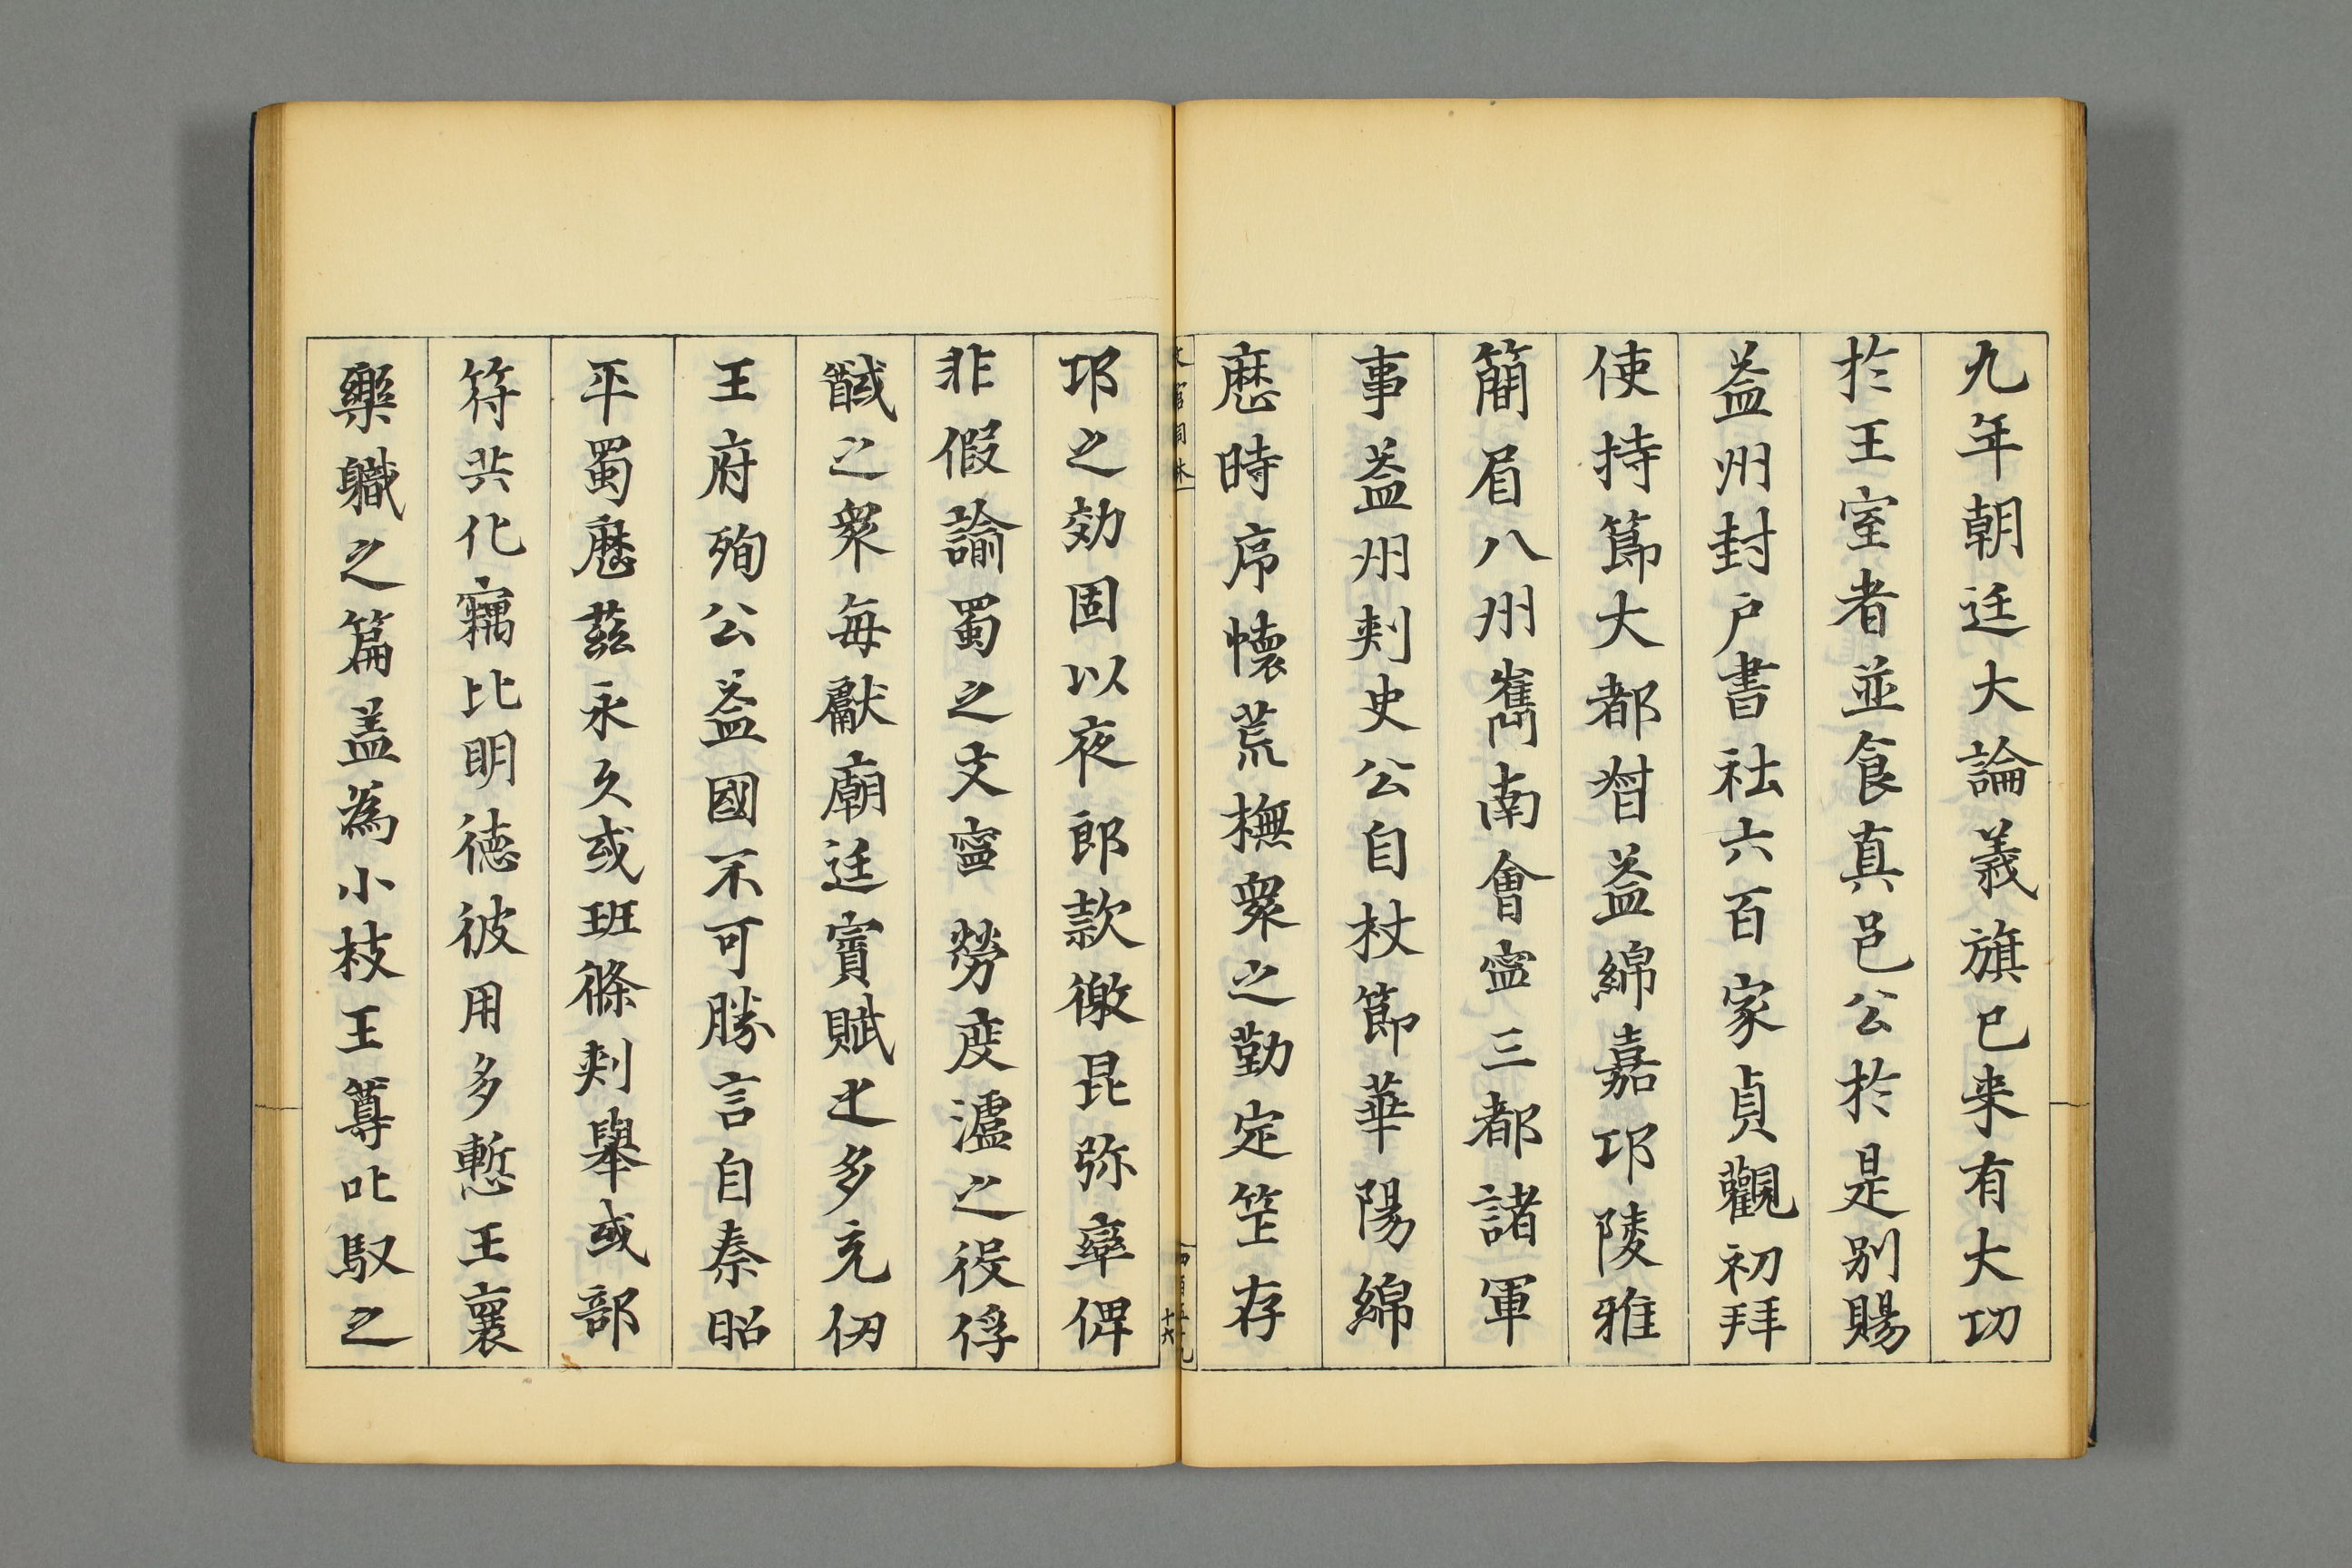 九年朝廷大論義旗已来有大功
於王室者並食真邑公於是别賜
益州封戶書社六百家貞觀初拜
使持節大都督益綿嘉邛陵雅
簡眉八州嶲南會寧三都諸軍
事益州刺史公自杖節華陽綿
歷時序懷荒撫衆之勤定笮存
邛之効固以夜郎款徼昆弥率俾
非假諭蜀之文寧勞度瀘之役俘
馘之衆每獻廟廷賨賦之多充仞
王府殉公益國不可勝言自秦昭
平蜀歷茲永久或班條刺舉或部
符共化竊比明德彼用多慙王襄
樂職之篇盖為小枝王尊叱馭之
十六